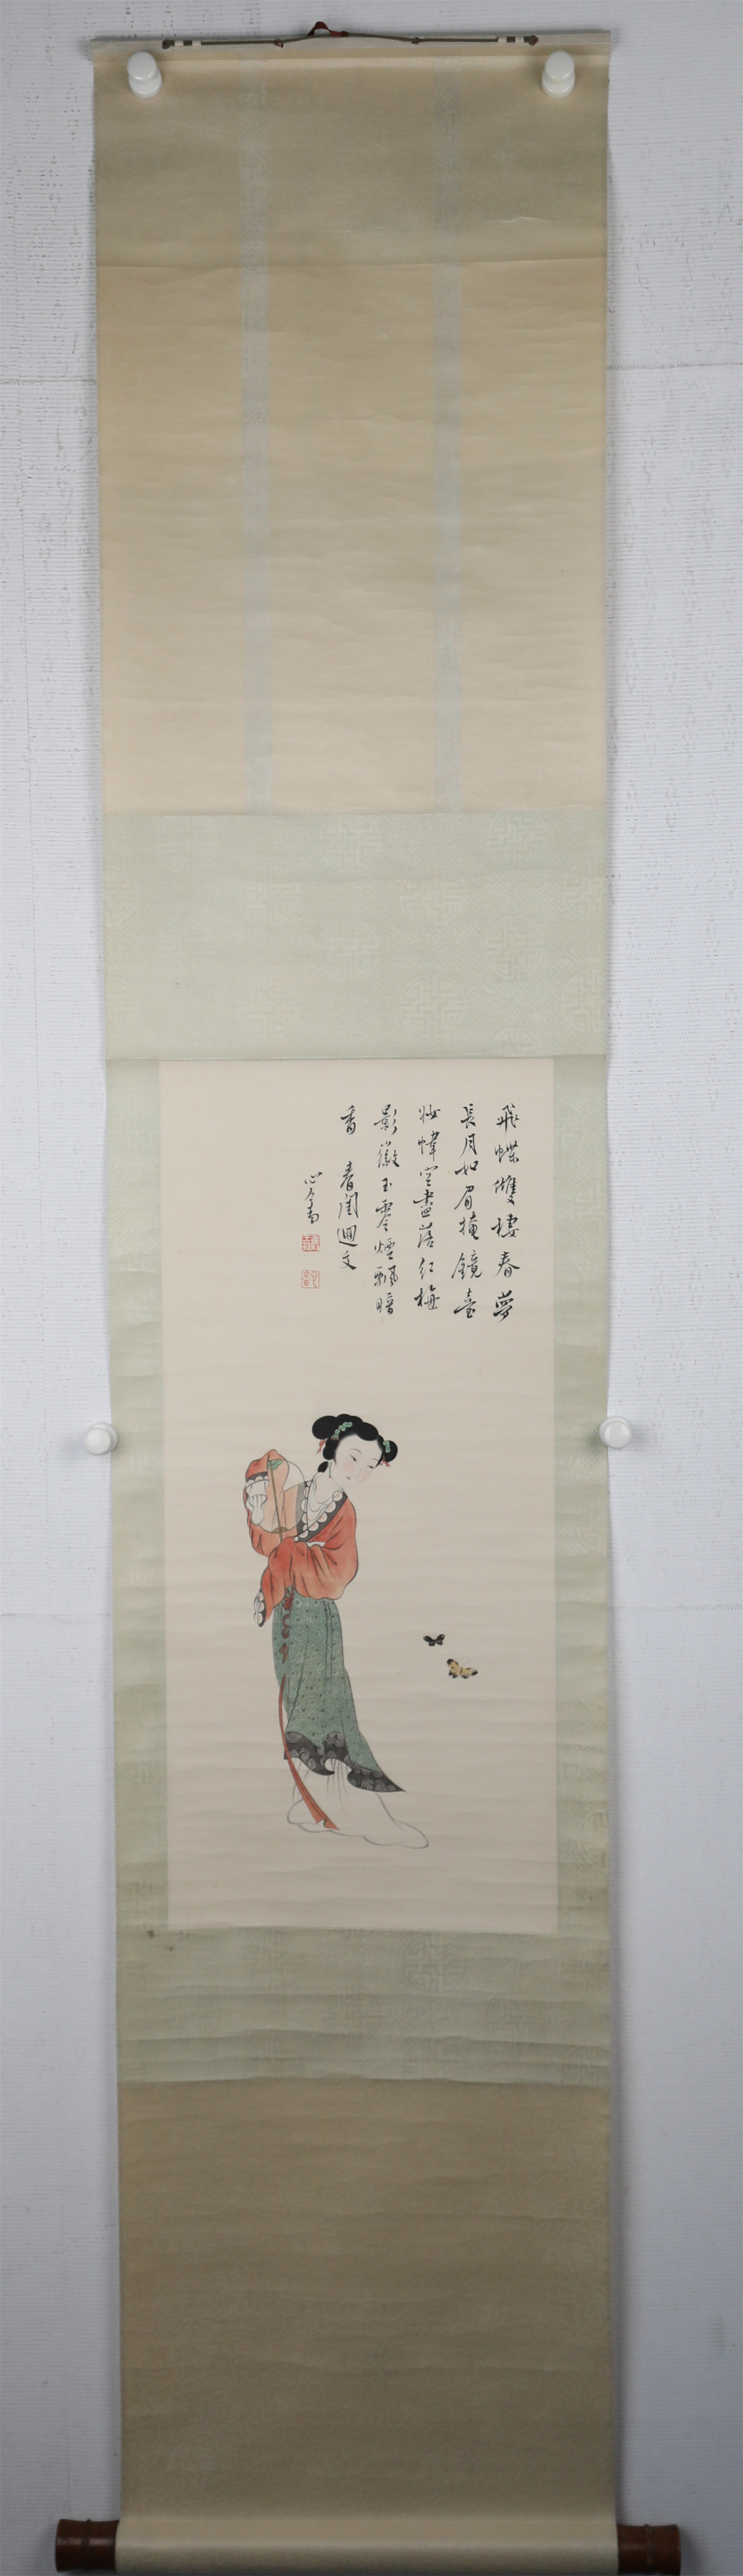 飛蝶雙棲春夢
長月如眉掩鏡臺
妝幃空畫落紅梅
影微玉零煙飄暗
香 春閨迴文
心畬